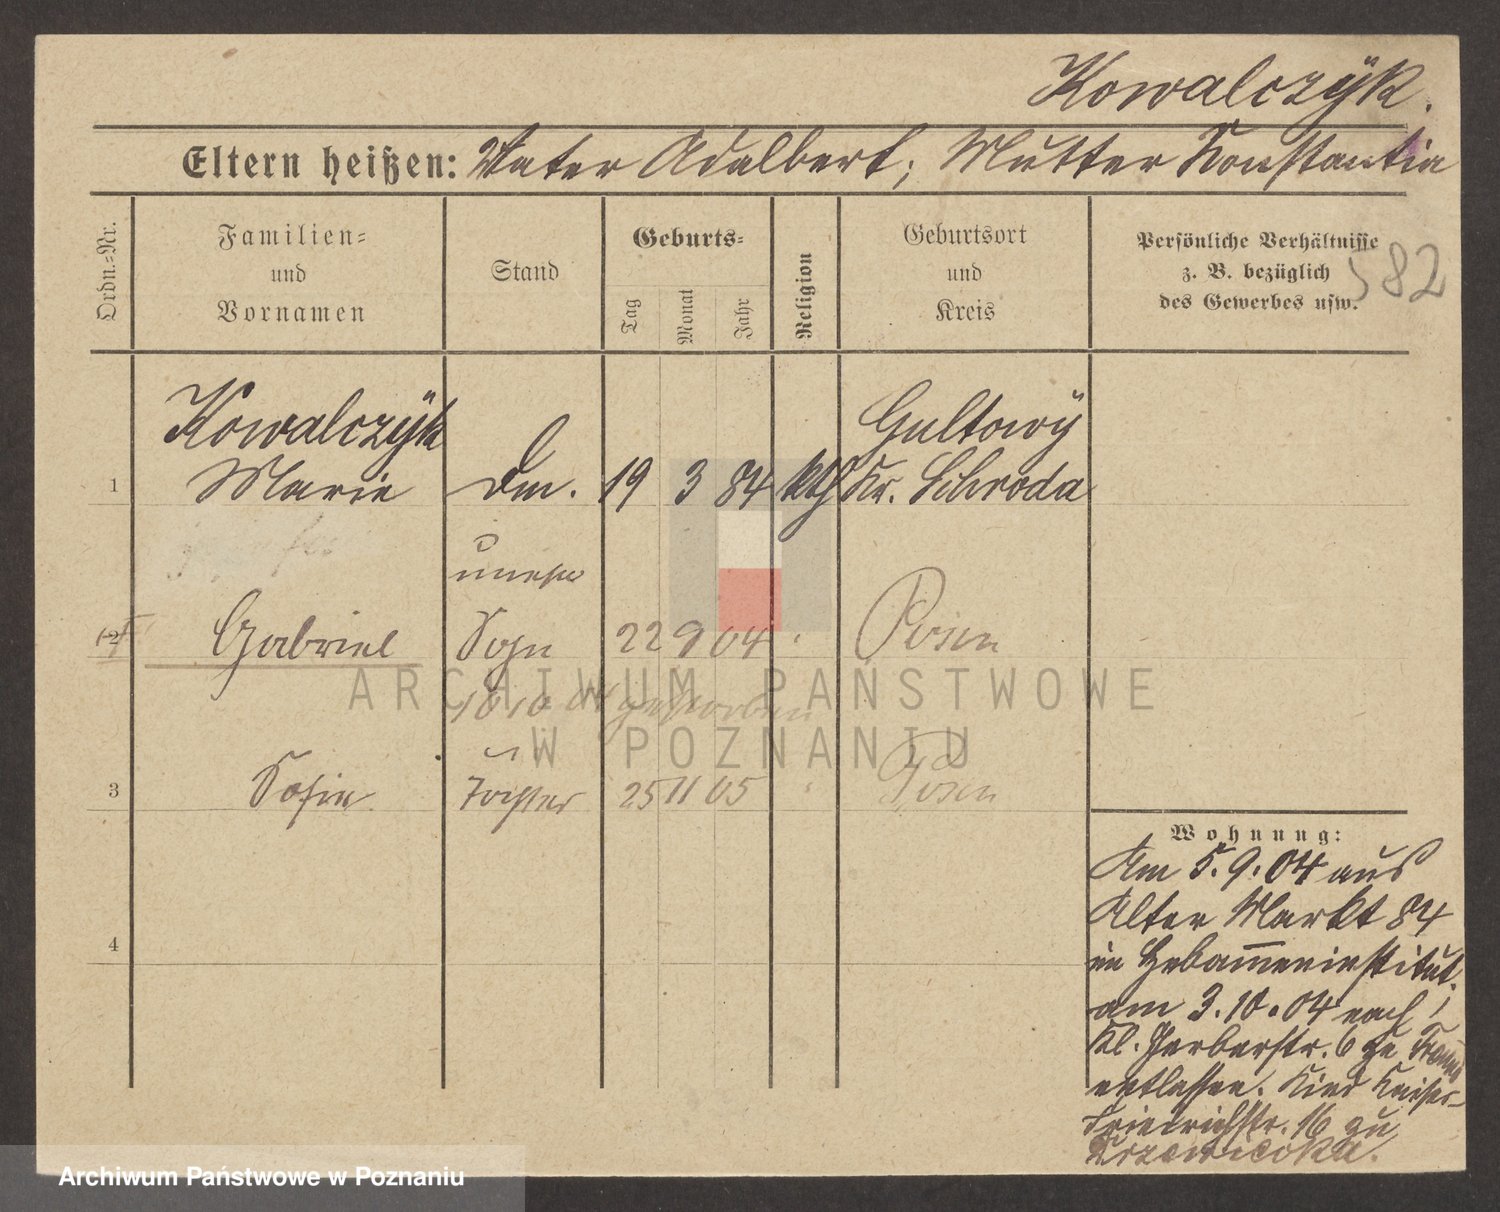 Kowalczÿk.
Eltern heißen: Vater Adalbert; Mutter Konstantia
Ordn.-Nr.
Familien-
und
Vornamen
Stand
Geburts-
Tag
Monat
Jahr
Religion
Geburtsort
und
Kreis
Persönliche Verhältnisse
z. B. bezüglich
des Gewerbes usw.
582
Kowalczÿk
Gultowÿ
1 Marie
19 3 84 kth Kr. Schroda
unehe
2 Gabriel Sohn 22 9 04 " Posen
18 10 04 gestorben
3 Sofie Tochter 25 11 05 " Posen
4
Wohnung:
Am 5.9.04 aus
Alter Markt 84
in Hebam̅eninstitut.
am 3.10.04 nach
Kl. Gerberstr. 6 zu
entlassen. Kind Kaiser-
Friedrichstr. 16 zu
ARCHIWUM PAŃSTWOWE
W POZNANIU
Archiwum Państwowe w Poznaniu